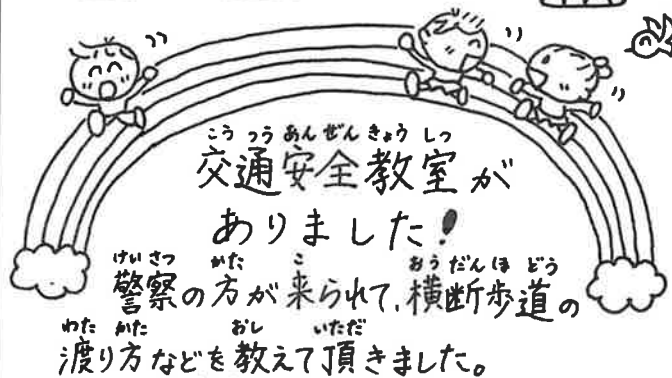 こうつうあんぜんきょうしつ
交通安全教室が
ありました!
けいさつ かた こ おうだんほどう
警察の方が来られて、横断歩道の
わた かた おし いただ
渡り方などを教えて頂きました。